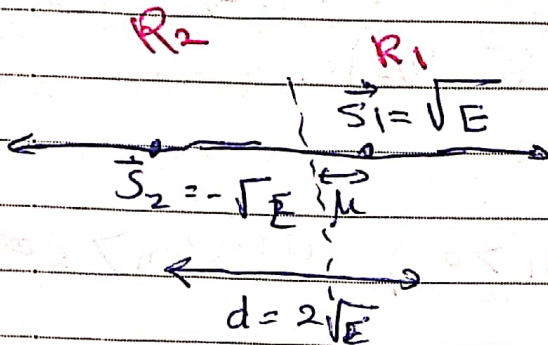 R2 R1
S⃗1 = √E
S⃗2 = -√E μ
d = 2√E